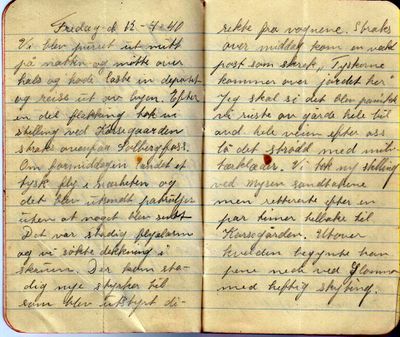 Fredag d. 12-4-40
Vi blev purret ut midt
på natten og måtte over
hals og hode laste inn depotet
og reise ut av byen. Efter
en del flakking tok vi
stilling ved Korsegaarden
straks ovenfor Solbergfoss.
Om formiddagen landet et
tysk fly i nærheten og
det blev utsendt patruljer
uten at noget blev sett
Det var stadig flyalarm
og vi søkte dekkning i
skauen. Der kom sta-
dig nye styrker til
som blev utstyrt di-
rekte fra vognene. Straks
over middag kom en vakt
post som skrek, "Tyskerne
kommer over jordet her"
Jeg skal si det blev panikk
vi reiste av gårde hele bil
ond hele veien efter oss
lå det strødd med mili
tærklæder. Vi tok ny stilling
ved Mysen sandtakene
men retterete efter en
par timer tilbake til
Korsegården. Utover
kvelden begynte kam
pene nede ved Glomma
med heftig skyting.